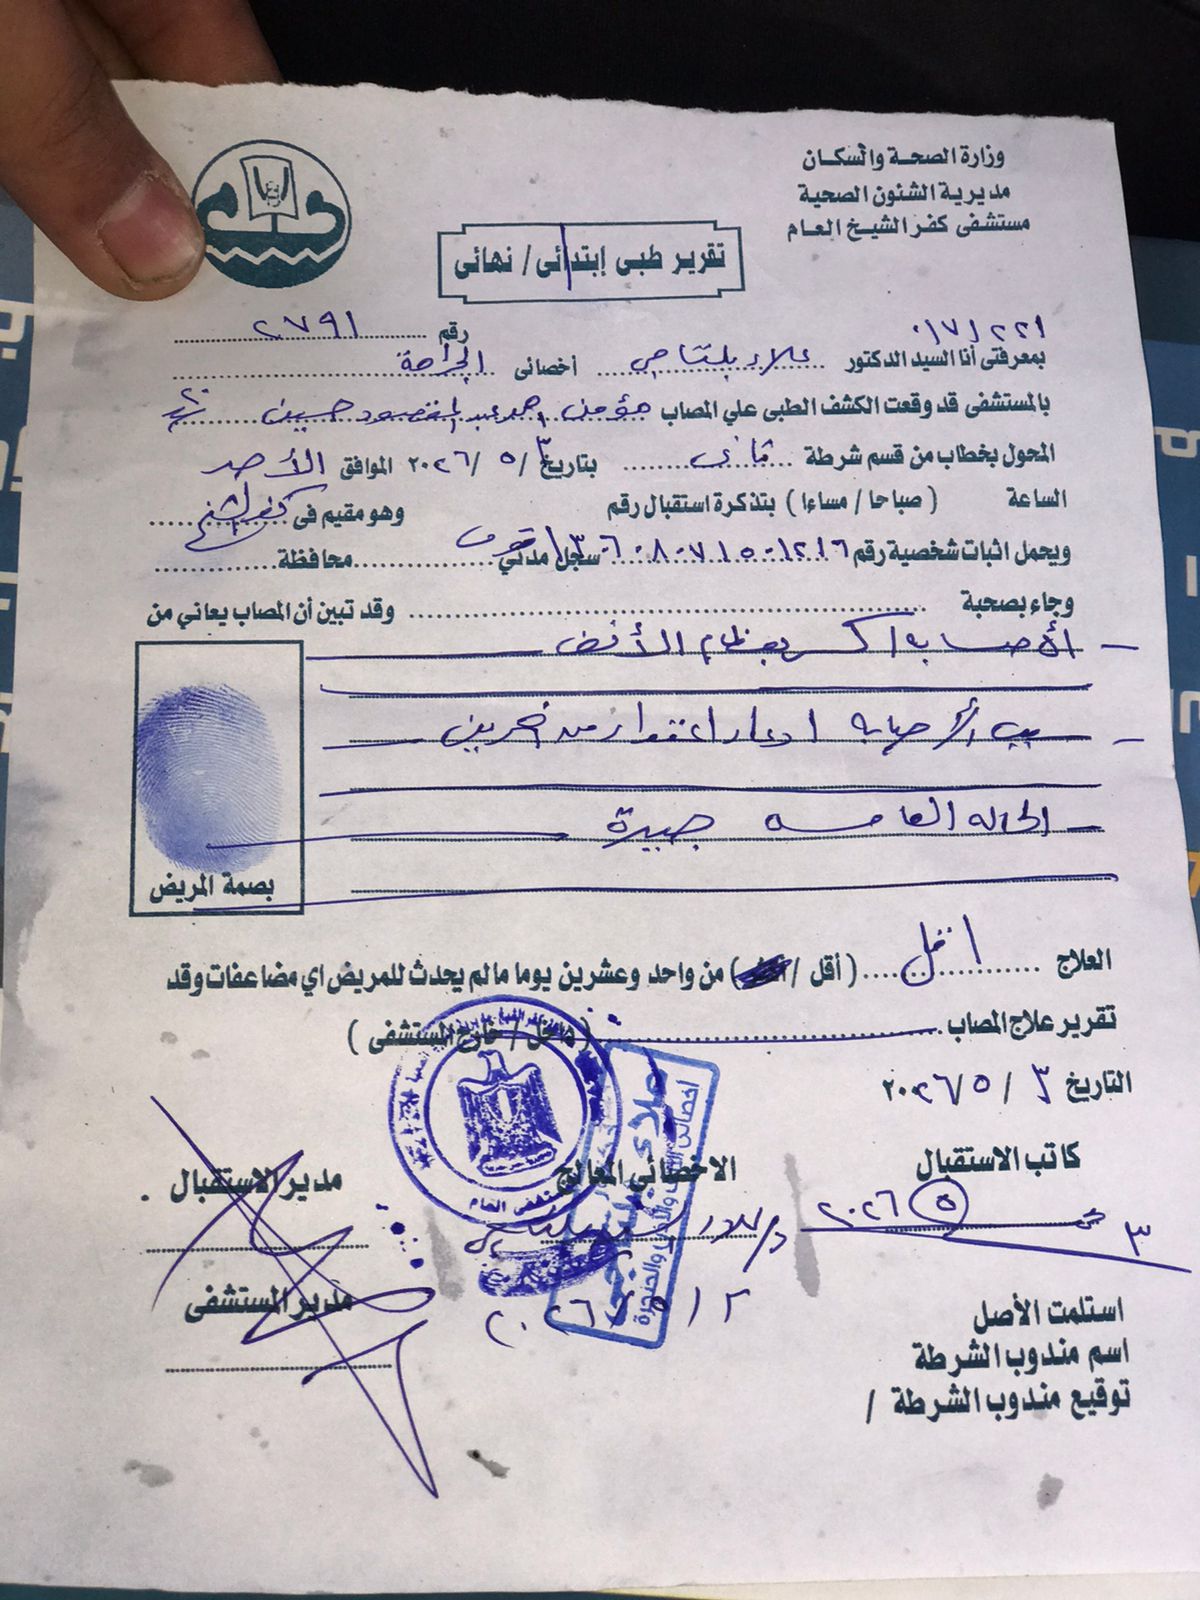 وزارة الصحة والسكان
مديرية الشئون الصحية
مستشفى كفر الشيخ العام
تقرير طبى إبتدائى / نهائى
رقم ٢٧٩١
بمعرفتى أنا السيد الدكتور علاء بلتاجي أخصائى الجراحة
بالمستشفى قد وقعت الكشف الطبى علي المصاب مؤمن احمد عبد المقصود حسين
المحول بخطاب من قسم شرطة ثاني بتاريخ ٣ / ٥ / ٢٠٢٦ الموافق الأحد
الساعة ( صباحا / مساءا ) بتذكرة استقبال رقم وهو مقيم فى كفر الشيخ
ويحمل اثبات شخصية رقم سجل مدني محافظة
وجاء بصحبة وقد تبين أن المصاب يعاني من
- الأصابه كسر بعظام الأنف
- سبب الأصابه ادعاء اعتداء من اخرين
- الحاله العامه جيدة
بصمة المريض
العلاج اقل ( أقل / ) من واحد وعشرين يوما مالم يحدث للمريض اي مضاعفات وقد
تقرير علاج المصاب ( داخل / خارج المستشفى )
التاريخ ٣ / ٥ / ٢٠٢٦
كاتب الاستقبال
الاخصائى المعالج
مدير الاستقبال
٣ ٥ ٢٠٢٦
مدير المستشفى
استلمت الأصل
اسم مندوب الشرطة
توقيع مندوب الشرطة /